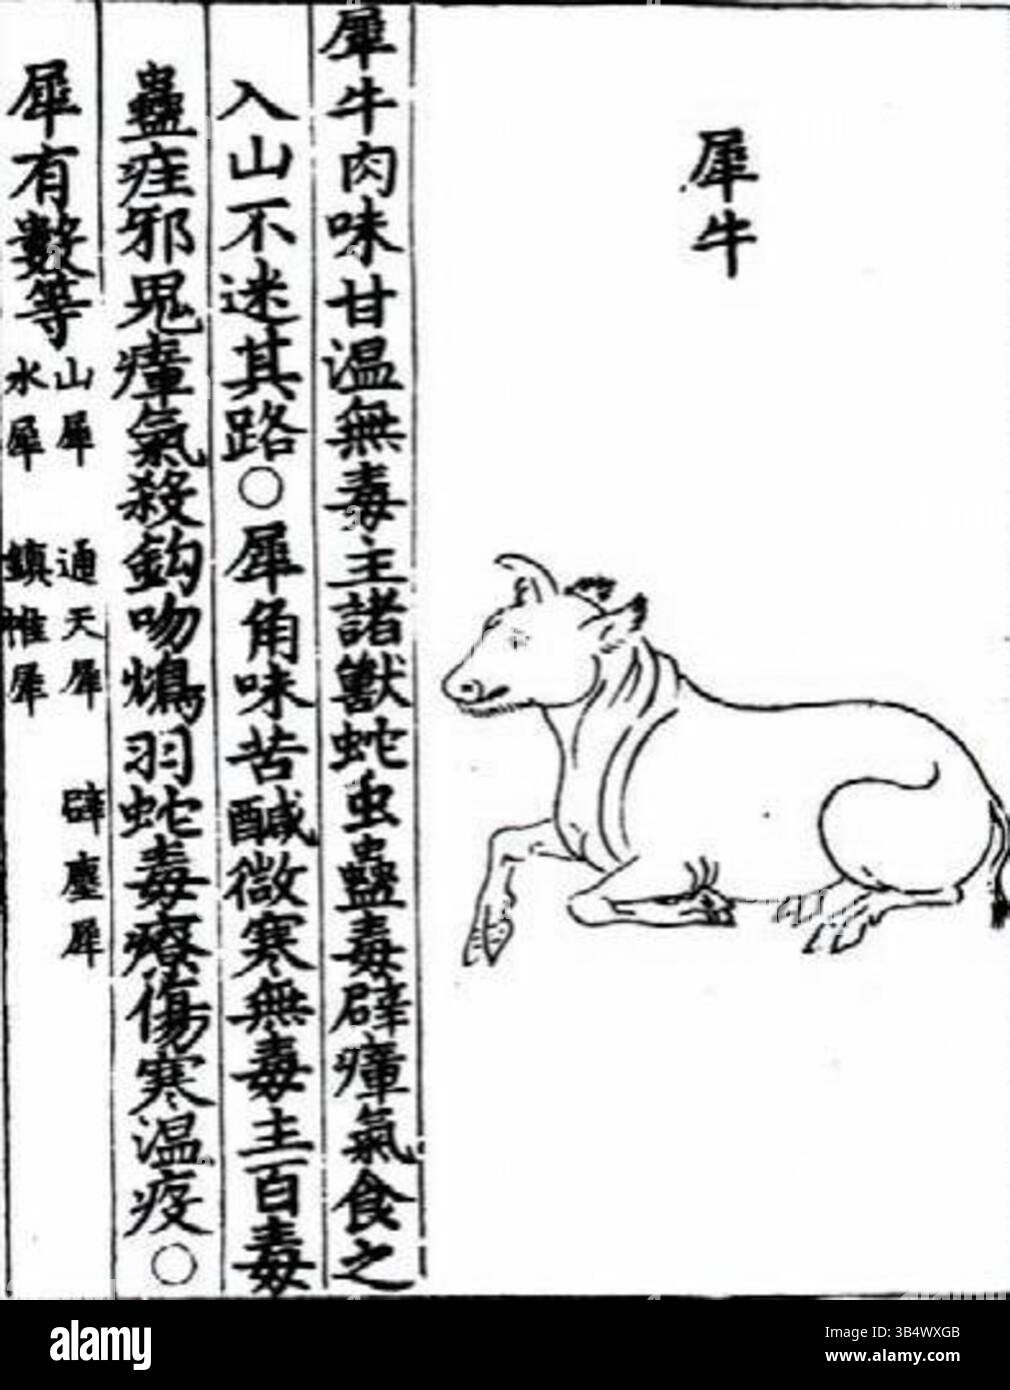 犀牛
犀牛肉味甘温無毒主諸獸蛇虫蠱毒辟瘴氣食之
入山不迷其路○犀角味苦鹹微寒無毒主百毒
蠱疰邪鬼瘴氣殺鈎吻鴆羽蛇毒療傷寒温疫○
犀有數等
山犀 通天犀 辟塵犀
水犀 鎮帷犀
alamy
Image ID: 3B4WXGB
www.alamy.com